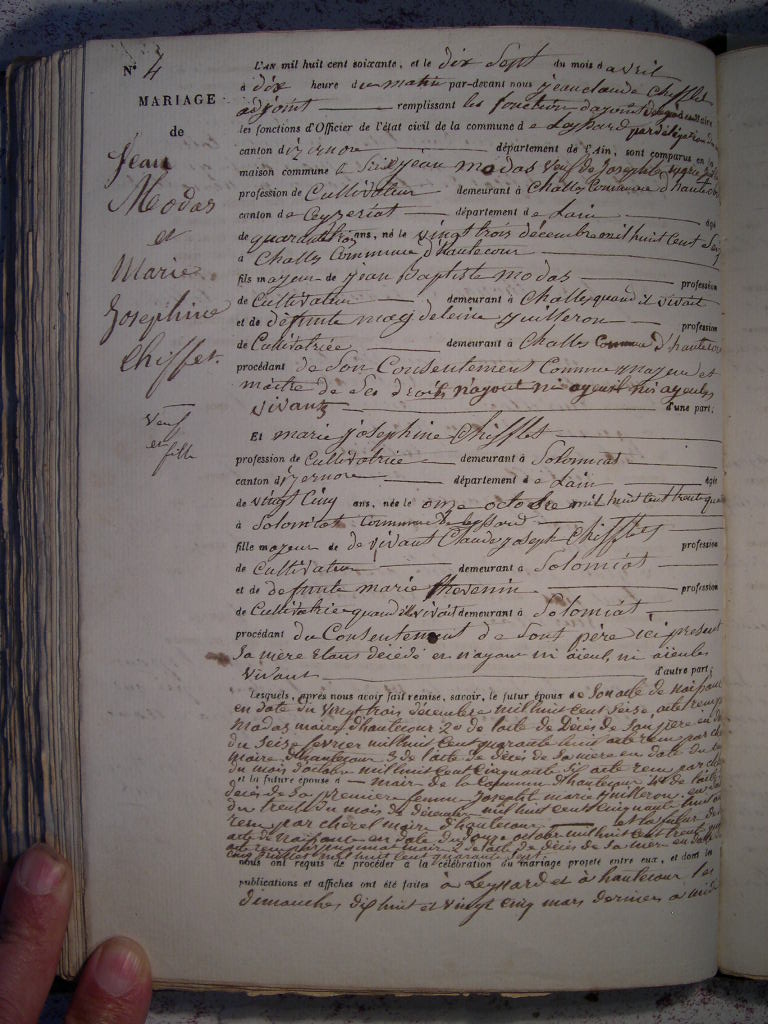 N° 4
MARIAGE
de
Jean
Modas
et
Marie
Josephine
Chifflet.
veuf
et
fille
L'AN mil huit cent soixante, et le dix Sept du mois d avril
à dix heure du matin par-devant nous jean claude Chifflet
adjoint remplissant les fonction d'ajoint
les fonctions d'Officier de l'état civil de la commune de Leyssard par délégation
canton d'izernore département de l'Ain, sont comparus en la
maison commune jean modas veuf de Josephte
profession de Cultivateur demeurant à Challes Commune d'hautecour
canton de Ceyzeriat département de Lain âgé
de quarante trois ans, né le vingt trois décembre mil huit cent Seize
à Challes Commune d'hautecour
fils majeur de jean Baptiste modas profession
de Cultivateur demeurant à Challes quand il vivait
et de défunte magdeleine guilleron profession
de Cultivatrice demeurant à Challes Commune d'hautecour
procédant de Son Consentement Comme mayeur et
maitre de Ses droits n'ayant ni ayeuls ni ayeules
vivants d'une part;
Et marie josephine Chifflet
profession de Cultivatrice demeurant à Solomiat
canton d'izernore département de Lain âgée
de vingt Cinq ans, née le onze octobre mil huit cent trente quatre
à Solomiat Commune de Leyssard
fille mayeur de de vivant Claude joseph Chifflet profession
de Cultivateur demeurant à Solomiat
et de defunte marie thevenin profession
de Cultivatrice quand il vivait demeurant à Solomiat
procédant du Consentement de Sont père ici present
Sa mère Etans décédé en n'ayant ni aïeul, ni aïeules
vivant d'autre part;
Lesquels, après nous avoir fait remise, savoir, le futur époux de Son acte de naissance
en date du vingt trois décembre mil huit cent Seize, acte rem par
modas maire d'hautecour 2° de l'acte de Décès de Son père en date
du Seize fevrier mil huit cent quarante huit acte rem par
maire d'hautecour 3 de l'acte de décès de Sa mère en date du
du mois d'octobre mil huit cent Cinquante Six acte rem par
et la future épouse d maire de la commune d'hautecour 4° de l'acte
décès de Sa premiere femme josepht marie guilleron, en date
du treize du mois de décembre mil huit cent Cinquante huit
rem par maire d'hautecour et la futur de
acte de naissance en date du onze octobre mil huit cent trente quatre
acte rem par maire 2 de l'acte de décès de Sa mere en date du
Cinq juillet mil huit cent quarante Sept.
nous ont requis de procéder à la célébration du mariage projeté entre eux, et dont les
publications et affiches ont été faites à Leyssard et à hautecour les
dimanches dix huit et vingt cinq mars dernier à midi